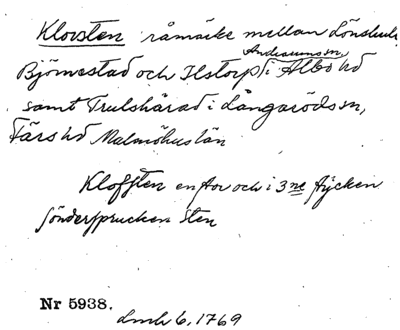 Klovsten råmärke mellan Lönshult,
Andrarums sn,
Björnestad och Ilstorp i Albo hd
samt Trulshärad i Långaröds sn,
Färs hd Malmöhus län
Klofften en stor och i 3ne stycken
söndersprucken sten
Nr 5938.
lmh 6, 1769